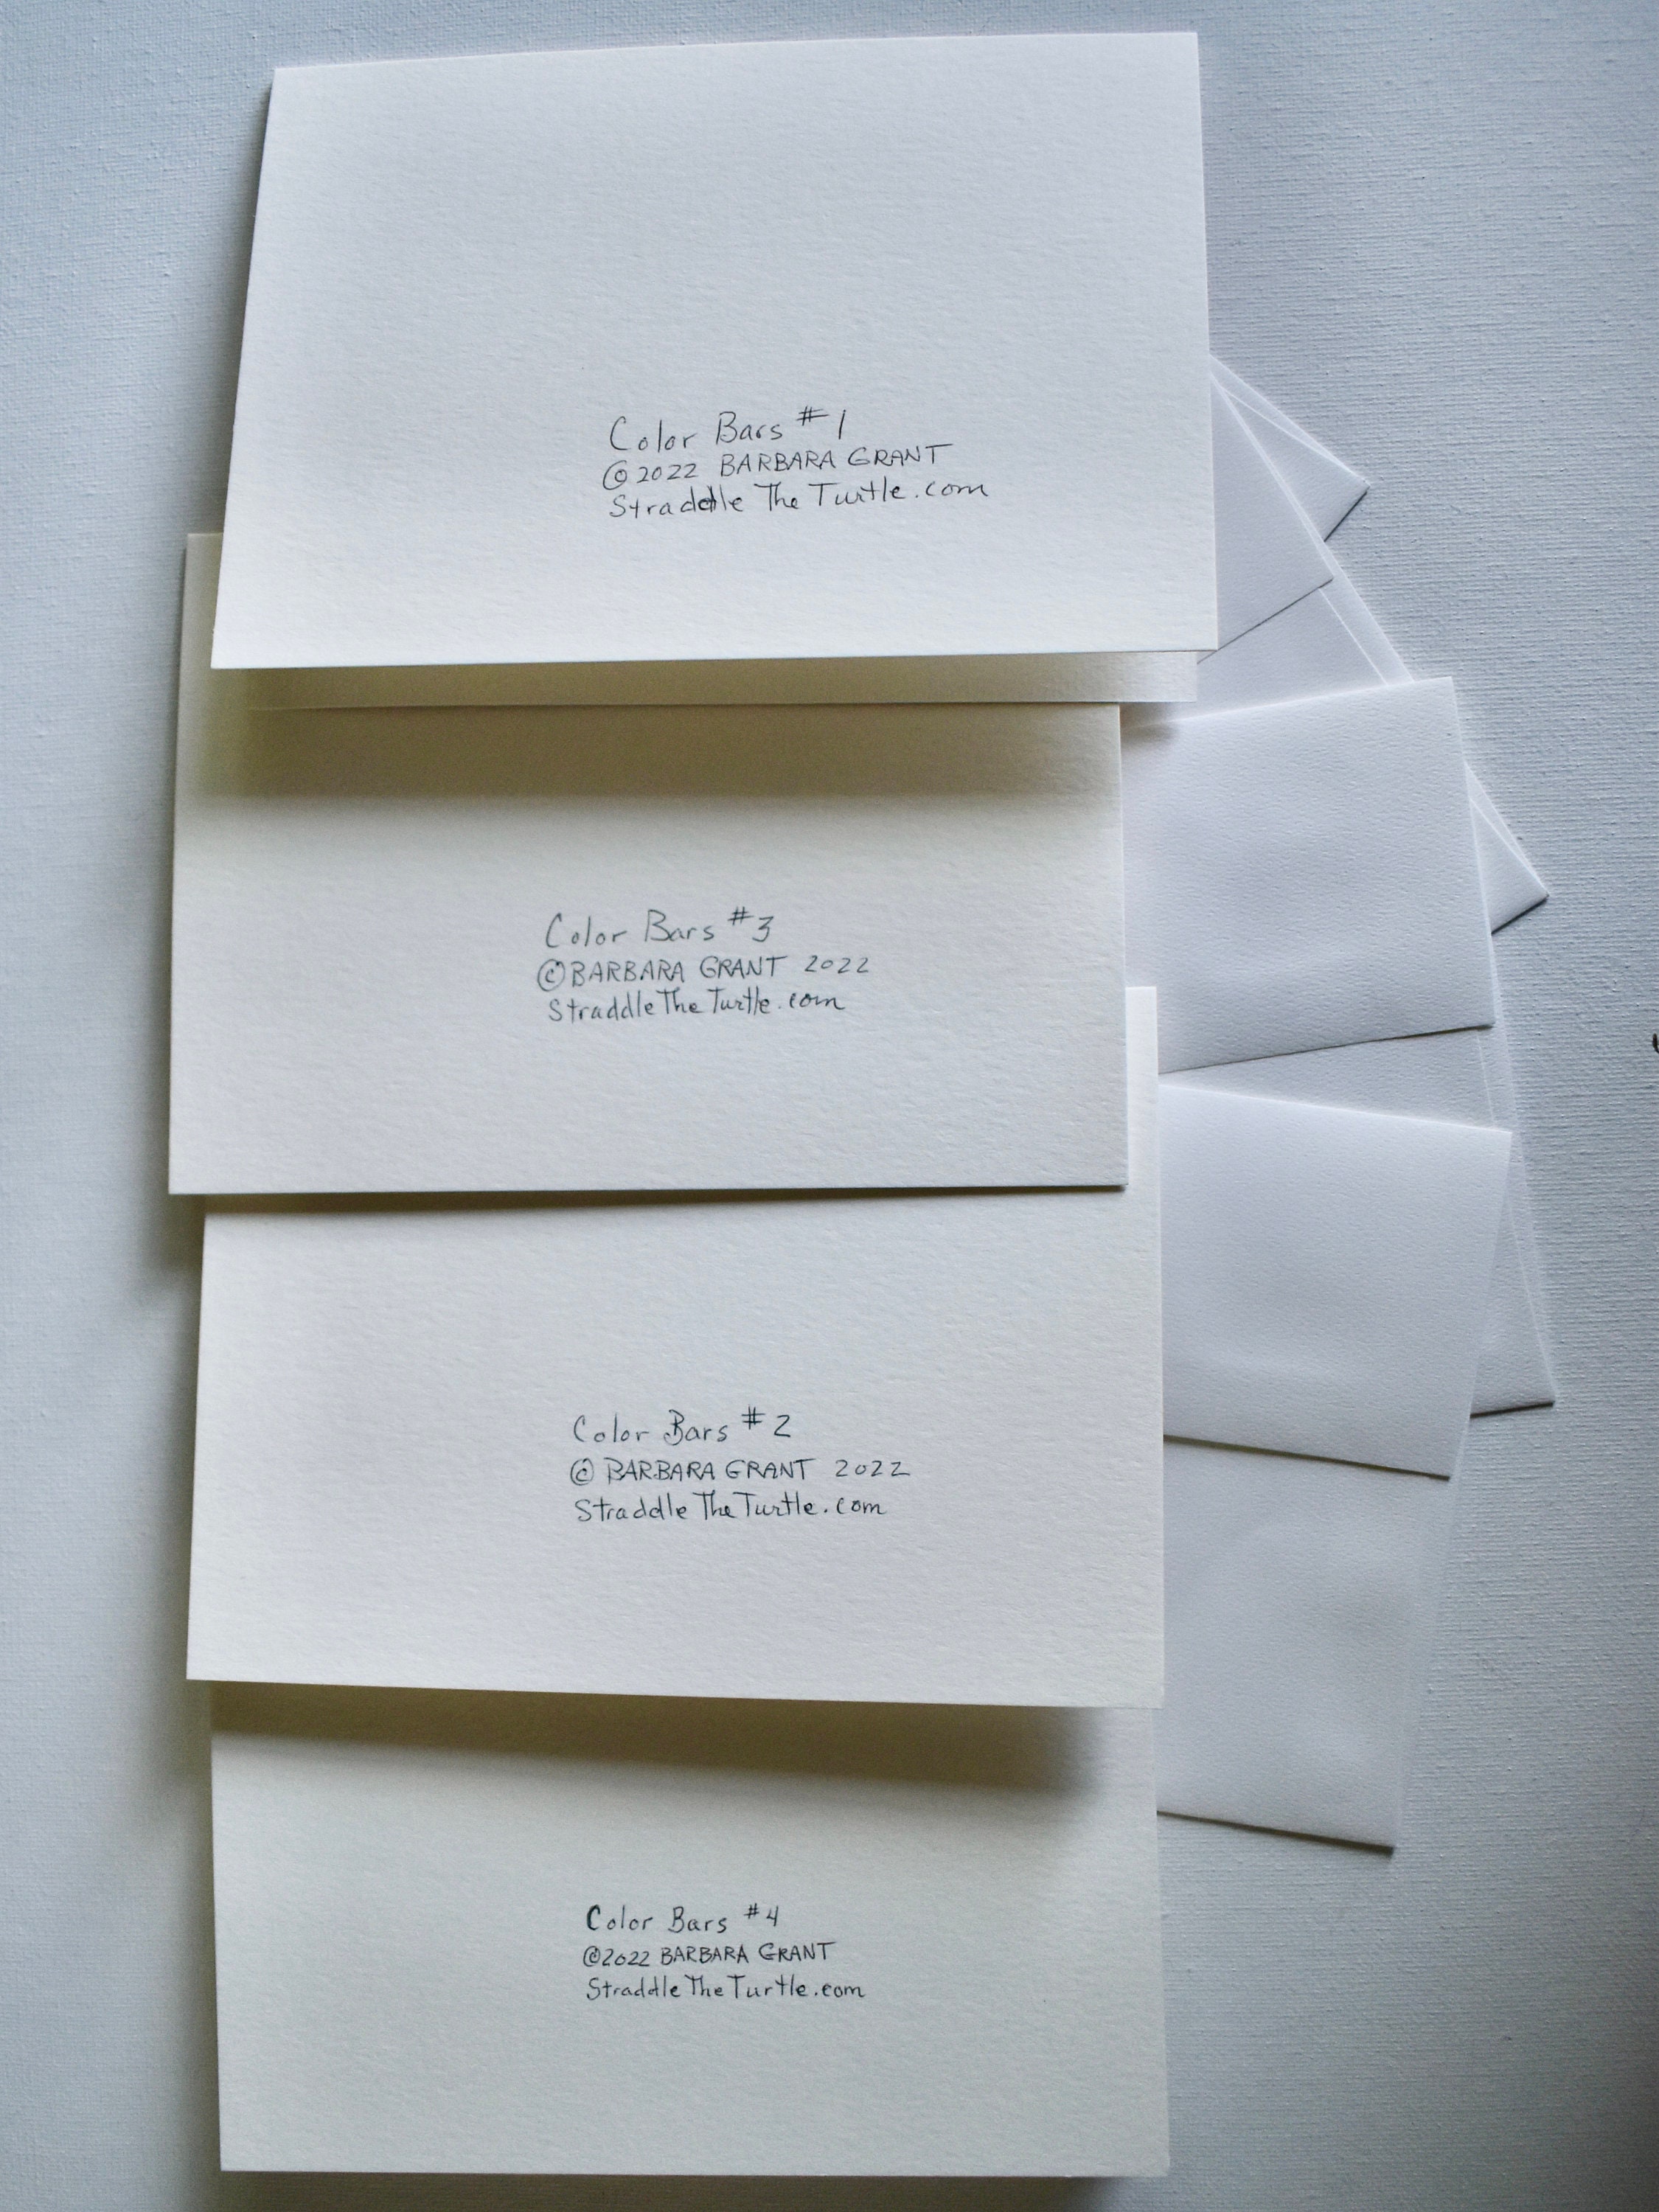 Color Bars #1
©2022 BARBARA GRANT
StraddleTheTurtle.com
Color Bars #3
©BARBARA GRANT 2022
StraddleTheTurtle.com
Color Bars #2
© BARBARA GRANT 2022
StraddleTheTurtle.com
Color Bars #4
©2022 BARBARA GRANT
StraddleTheTurtle.com